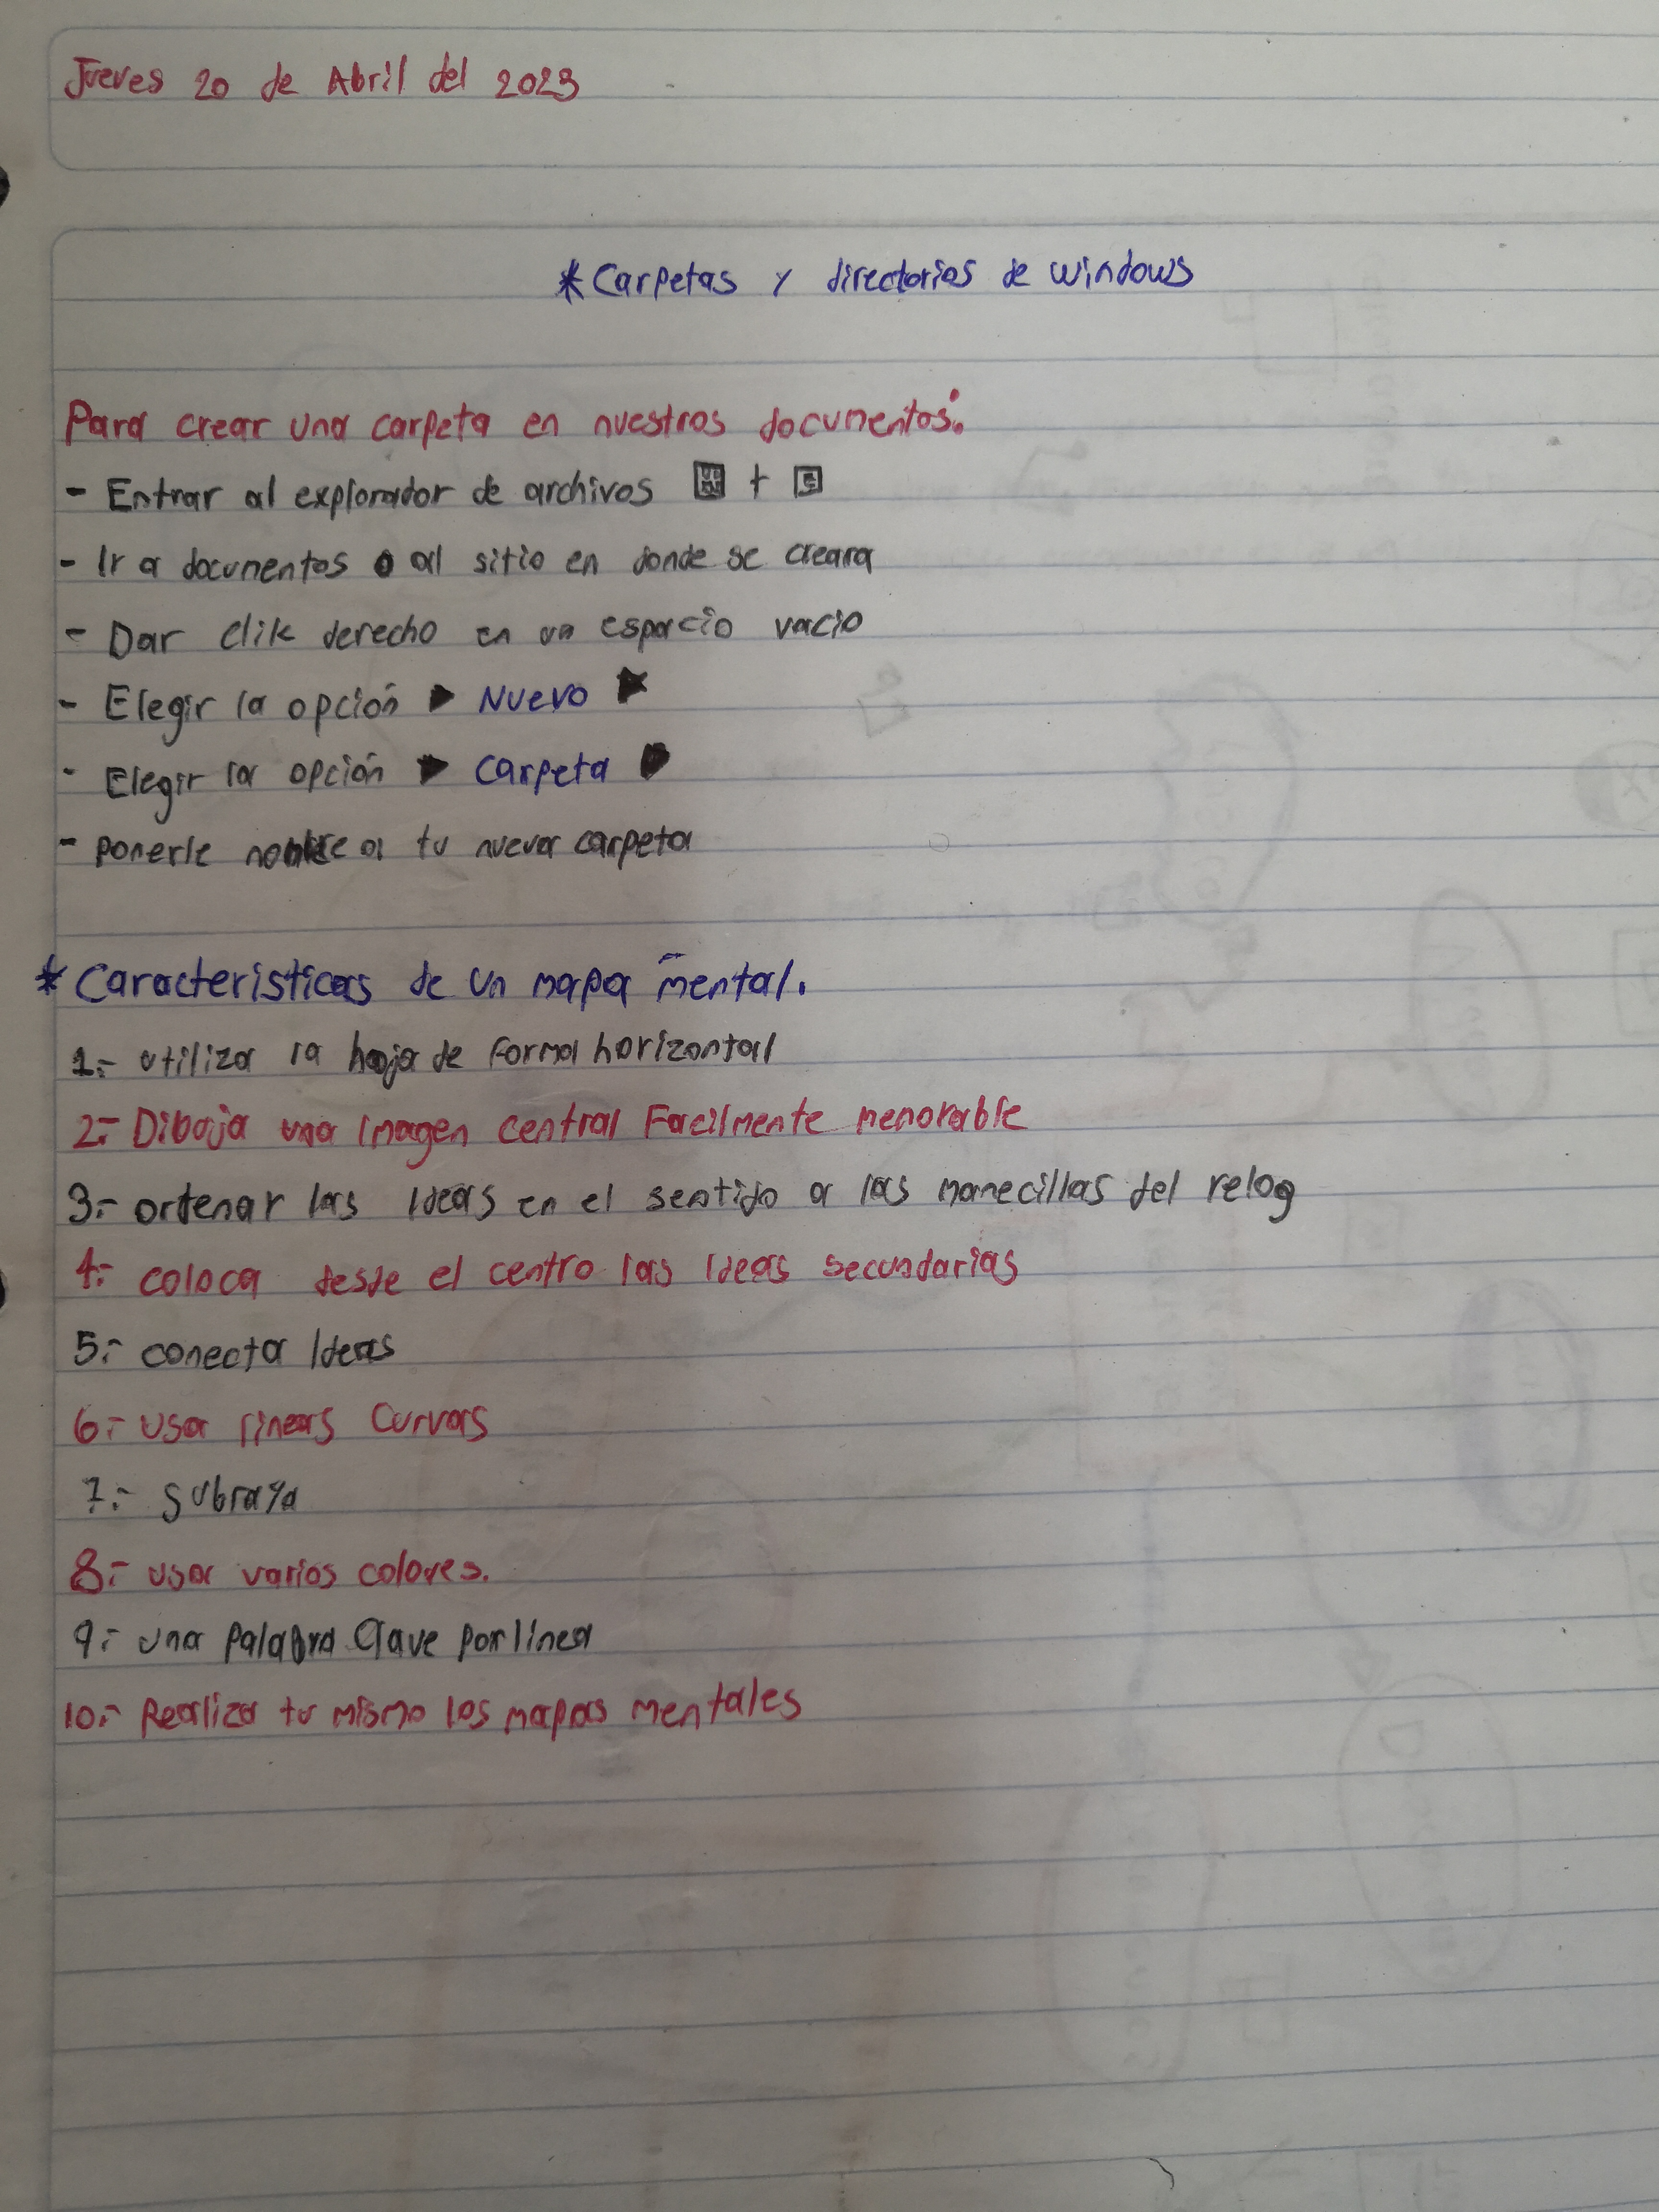 Jueves 20 de Abril del 2023
* Carpetas y directorios de windows
Para crear una carpeta en nuestros documentos:
- Entrar al explorador de archivos + E
- Ir a documentos o al sitio en donde se creara
- Dar clik derecho en un espacio vacio
- Elegir la opción ► Nuevo ►
- Elegir la opción ► Carpeta ►
- ponerle a tu nueva carpeta
* Caracteristicas de un mapa mental.
1.- utiliza la hoja de forma horizontal
2.- Dibuja una Imagen central Facilmente memorable
3.- ordenar las Ideas en el sentido a las manecillas del relog
4.- coloca desde el centro las Ideas secundarias
5.- conecta Ideas
6.- usa lineas Curvas
7.- subraya
8.- usa varios colores.
9.- una palabra Clave por linea
10.- Realiza tu mismo los mapas mentales